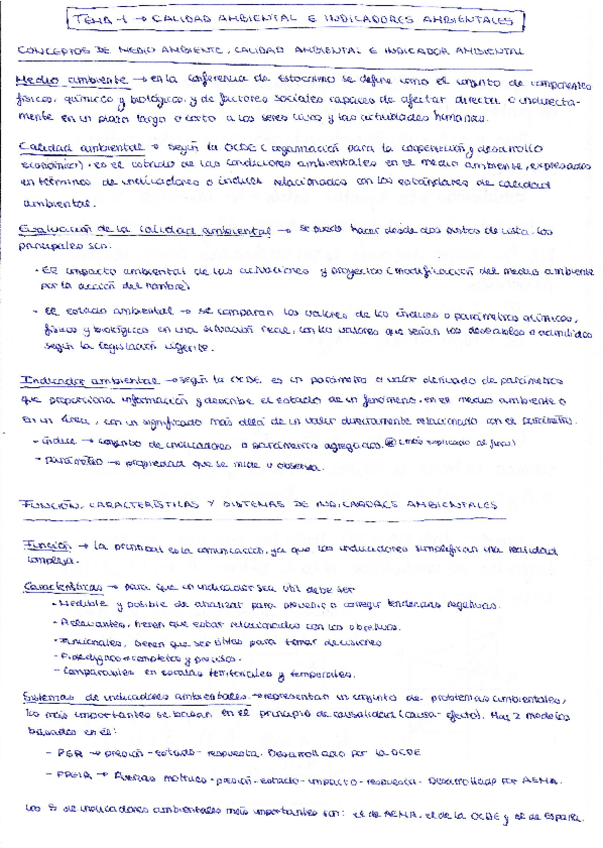 TEMA-1 → CALIDAD AMBIENTAL E INDICADORES AMBIENTALES
CONCEPTOS DE MEDIO AMBIENTE, CALIDAD AMBIENTAL E INDICADOR AMBIENTAL
Medio ambiente → en la conferencia de Estocolmo se define como el conjunto de componentes
físicos, químicos y biológicos, y de factores sociales capaces de afectar directa o indirecta-
mente en un plazo largo o corto a los seres vivos y las actividades humanas.
Calidad ambiental → según la OCDE (organización para la cooperación y desarrollo
económico), es el estado de las condiciones ambientales en el medio ambiente, expresados
en términos de indicadores o índices relacionados con los estándares de calidad
ambiental.
Evaluación de la calidad ambiental → se puede hacer desde dos puntos de vista. Los
principales son:
· El impacto ambiental de las actuaciones y proyectos (modificación del medio ambiente
por la acción del hombre)
· El estado ambiental → se comparan los valores de los índices o parámetros químicos,
físicos y biológicos en una situación real, con los valores que serían los deseables o admitidos
según la legislación vigente.
Indicador ambiental → según la OCDE, es un parámetro o valor derivado de parámetros
que proporciona información y describe el estado de un fenómeno, en el medio ambiente o
en un área, con un significado más allá de un valor directamente relacionado con el parámetro.
- índice → conjunto de indicadores o parámetros agregados. (más explicado al final)
- parámetro → propiedad que se mide u observa.
FUNCIÓN, CARACTERÍSTICAS Y SISTEMAS DE INDICADORES AMBIENTALES
Función → la principal es la comunicación, ya que los indicadores simplifican una realidad
compleja.
Características → para que un indicador sea útil debe ser
- Medible y posible de analizar para prevenir o corregir tendencias negativas.
- Relevantes, tienen que estar relacionados con los objetivos.
- Funcionales, tienen que ser útiles para tomar decisiones
- Fidedignos completos y precisos.
- Comparables en escalas territoriales y temporales.
Sistemas de indicadores ambientales → representan un conjunto de problemas ambientales,
los más importantes se basan en el principio de causalidad (causa-efecto). Hay 2 modelos
basados en él:
- PER → presión-estado-respuesta. Desarrollado por la OCDE
- FPEIR → Fuerzas motrices-presión-estado-impacto-respuesta. Desarrollado por AEMA.
Los S de indicadores ambientales más importantes son: el de AEMA, el de la OCDE y el de España.